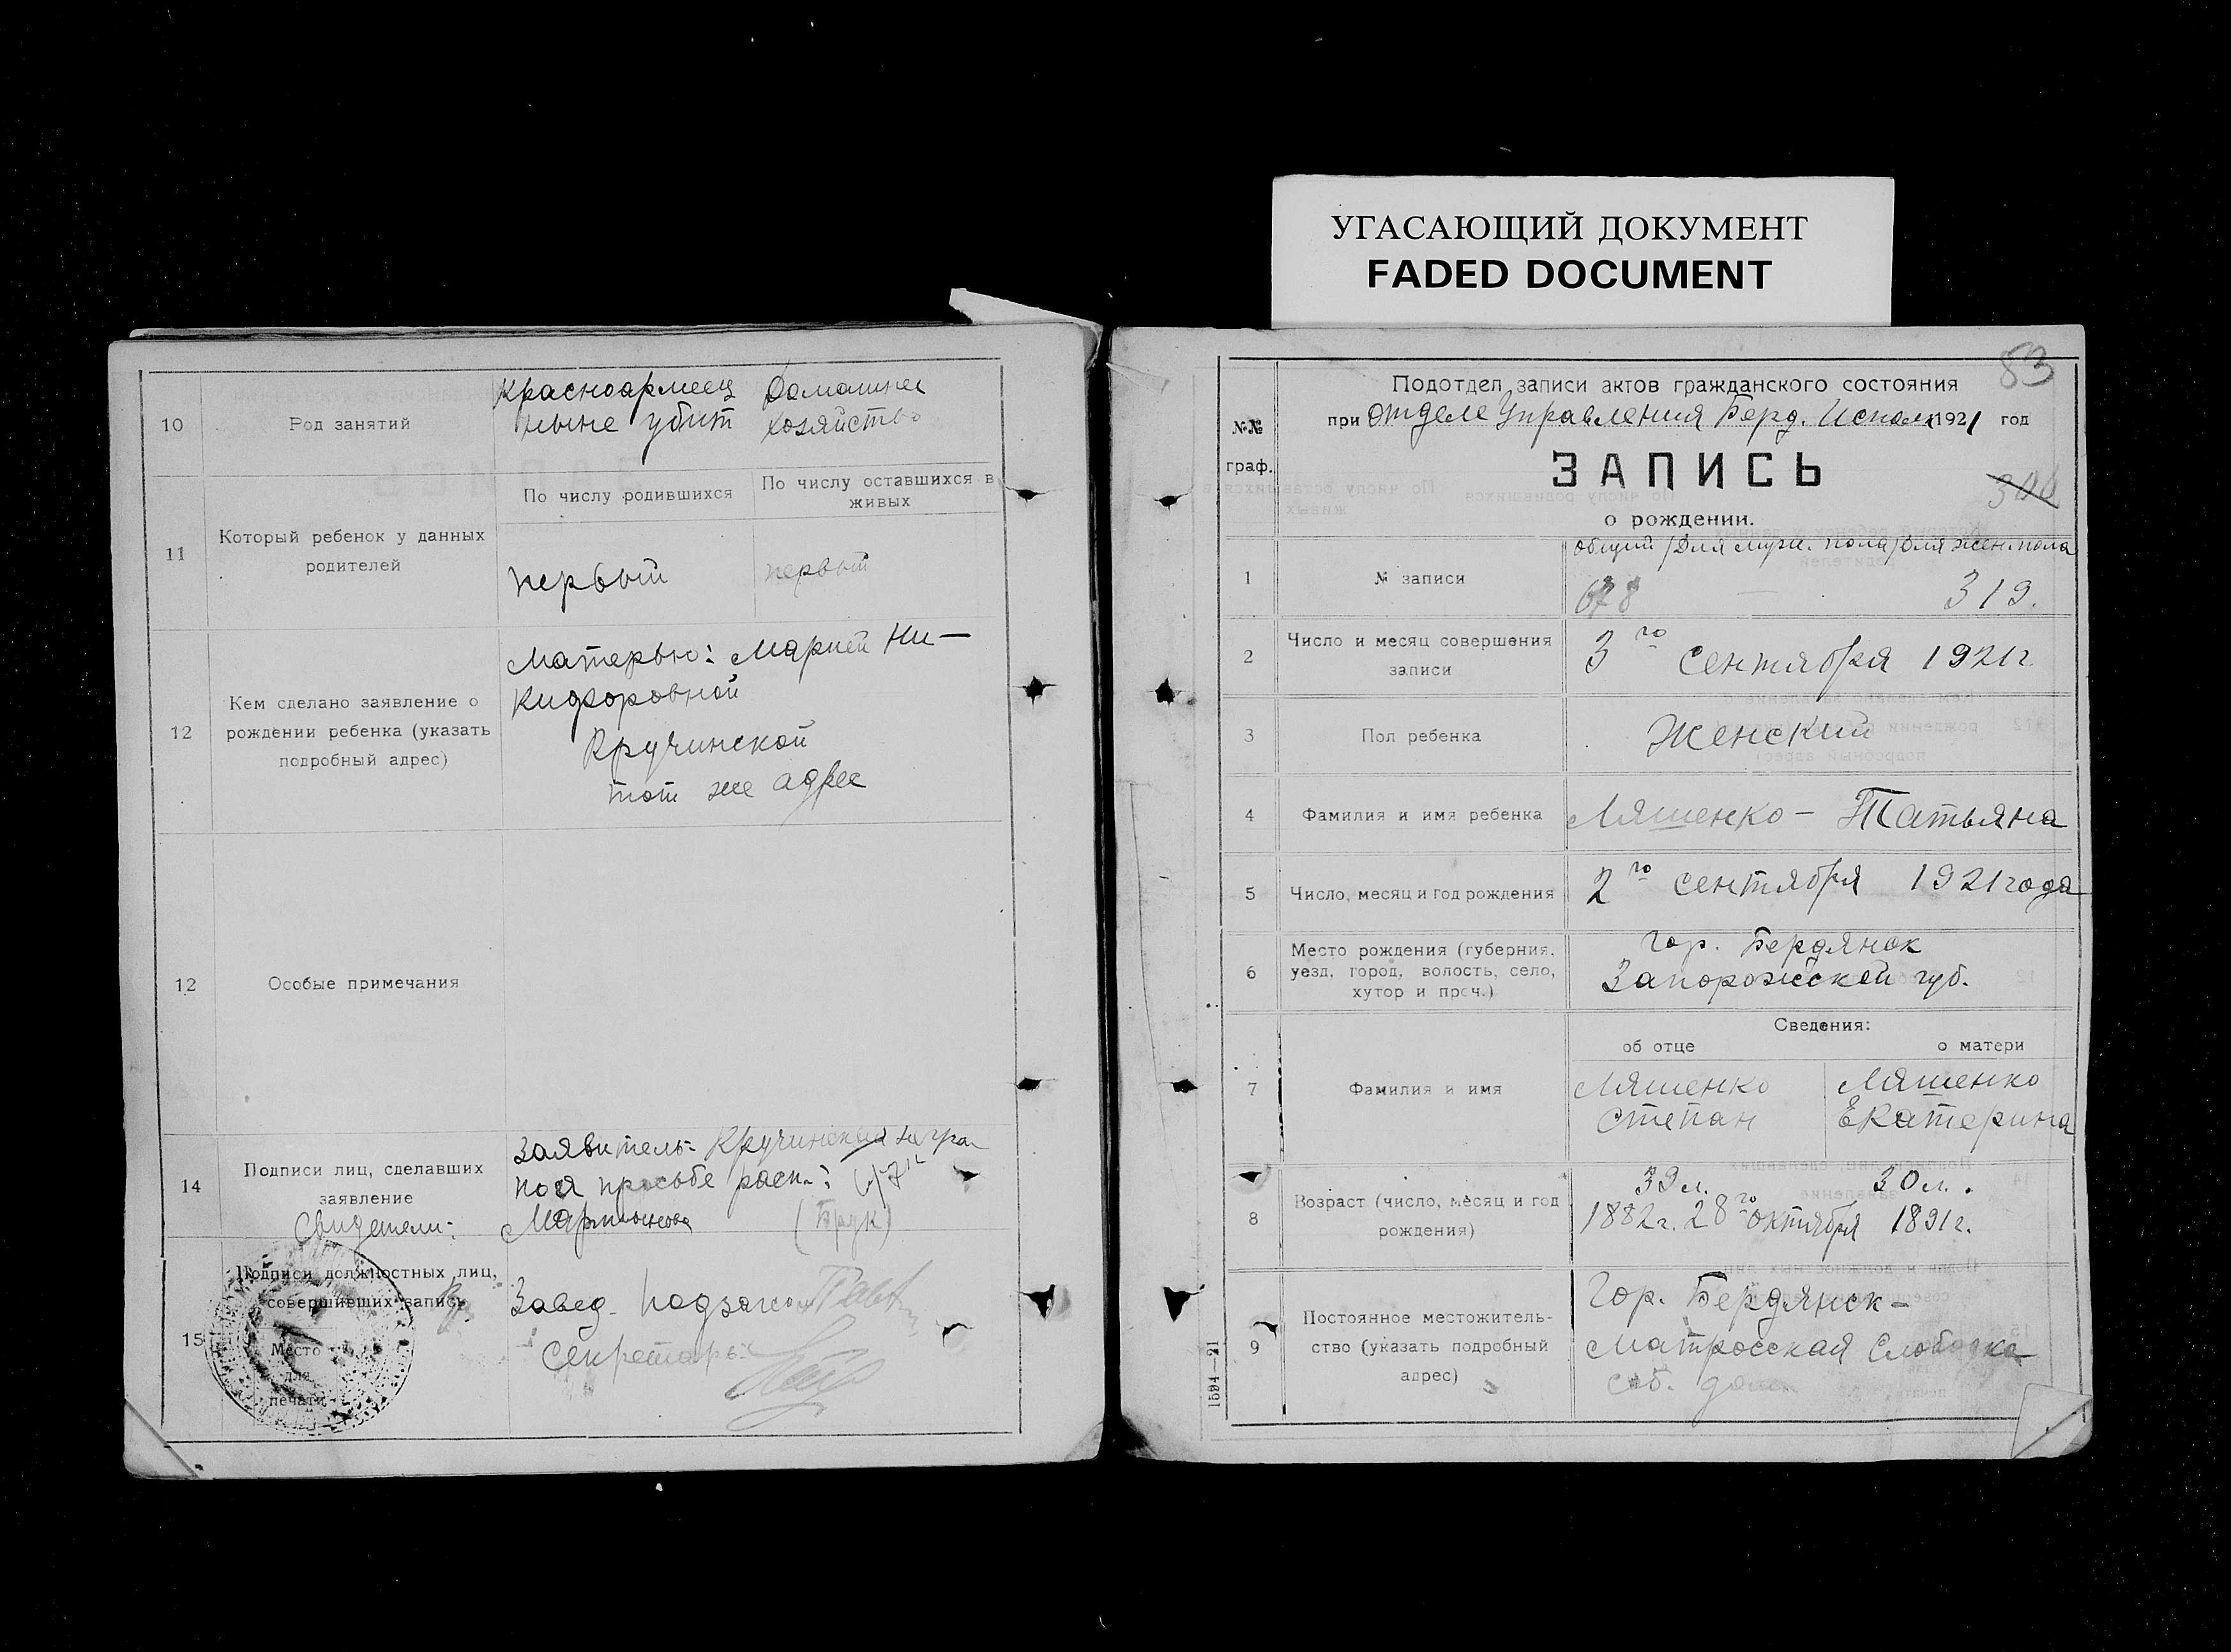 УГАСАЮЩИЙ ДОКУМЕНТ
FADED DOCUMENT
10
Род занятий
Красноармеец
ныне убит
Домашнее
хозяйство
11
Который ребенок у данных
родителей
По числу родившихся
По числу оставшихся в
живых
первый
первый
12
Кем сделано заявление о
рождении ребенка (указать
подробный адрес)
Матерью: Марией Ни-
кифоровной
Кручинской
тот же адрес
12
Особые примечания
14
Подписи лиц, сделавших
заявление
Свидетели:
Заявитель: Кручинская
просьбе расп.:
Мартынова
15
Подписи должностных лиц,
совершивших запись
Место
для
печати
Завед.
Секретарь:
83
№№
граф.
Подотдел записи актов гражданского состояния
при отделе Управления Берд. Исполк 1921 год
ЗАПИСЬ
306
о рождении.
общий / для муж. пола / для жен. пола
1
№ записи
678
319.
2
Число и месяц совершения
записи
3го сентября 1921г.
3
Пол ребенка
Женский
4
Фамилия и имя ребенка
Ляшенко - Татьяна
5
Число, месяц и год рождения
2го сентября 1921 года
6
Место рождения (губерния,
уезд, город, волость, село,
хутор и проч.)
Гор. Бердянск
Запорожской губ.
Сведения:
об отце
о матери
7
Фамилия и имя
Ляшенко
Степан
Ляшенко
Екатерина
8
Возраст (число, месяц и год
рождения)
39 л.
30 л.
1882г. 28го октября 1891г.
9
Постоянное местожитель-
ство (указать подробный
адрес)
Гор. Бердянск -
Матросская Слободка
соб. дом
1594—21